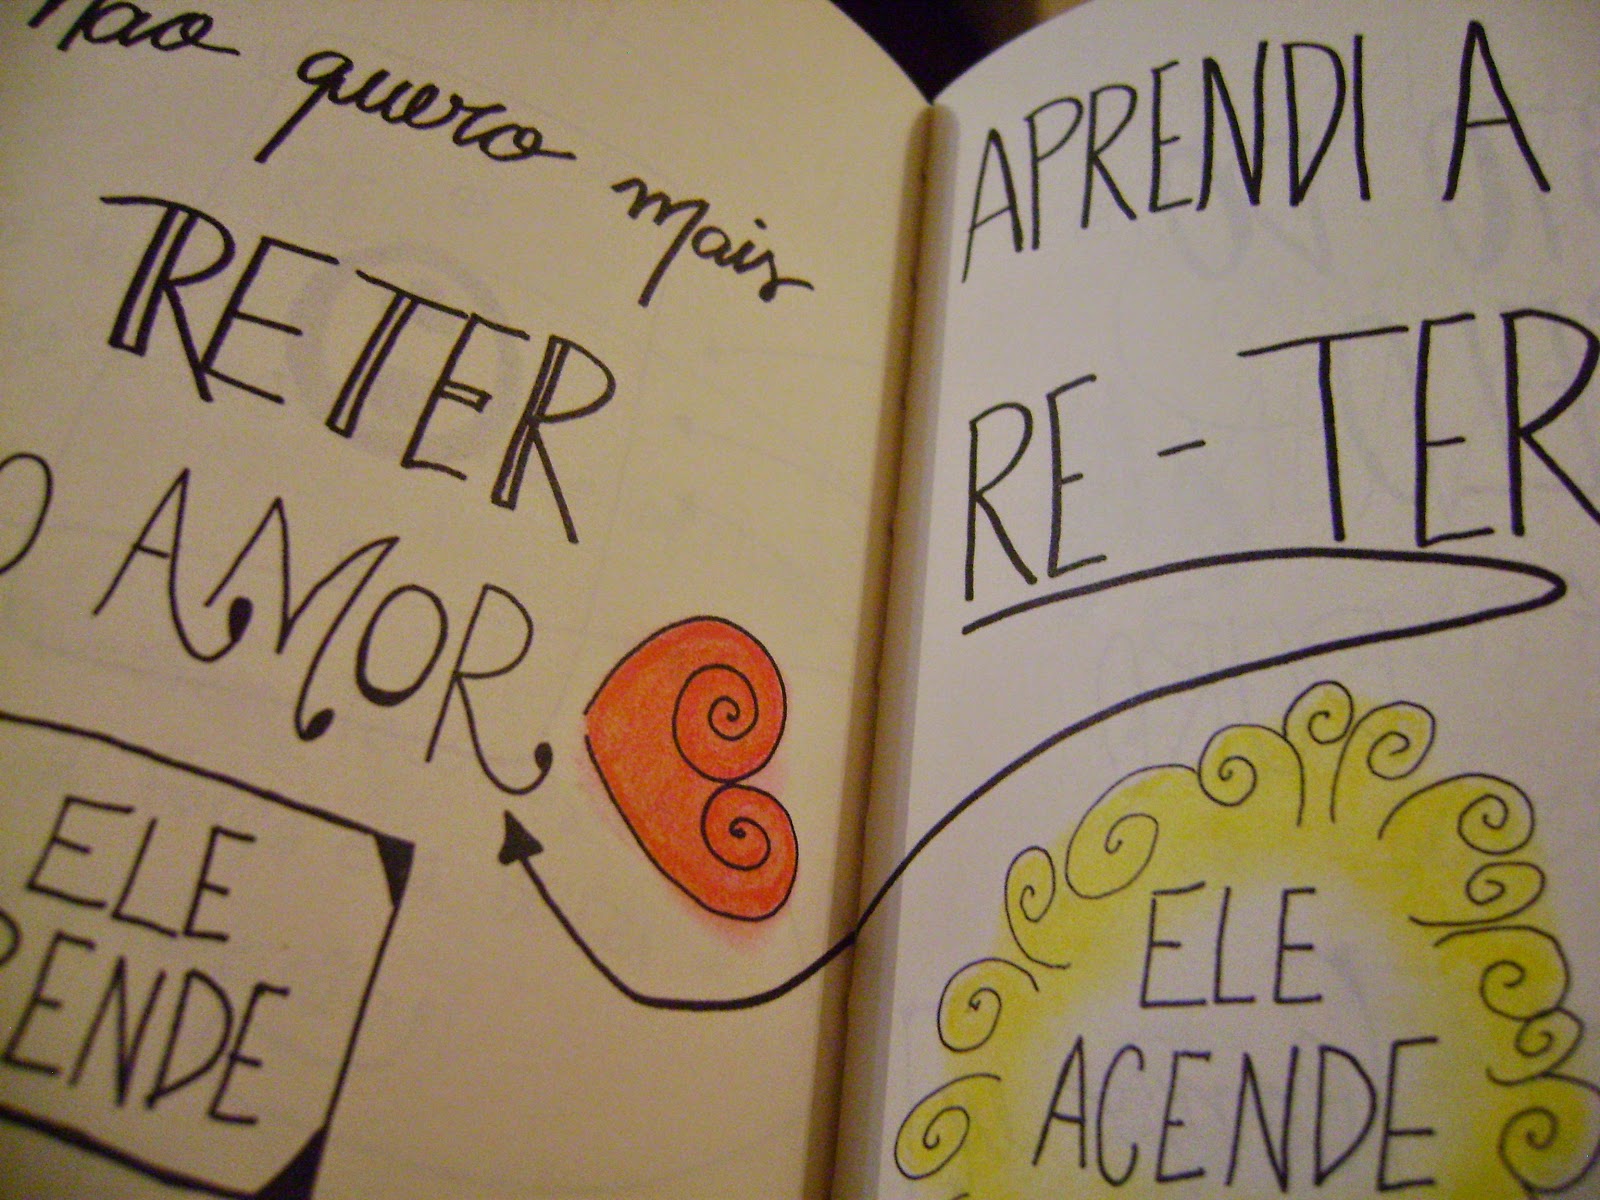 não quero mais
RETER
O AMOR
ELE
RENDE
APRENDI A
RE-TER
ELE
ACENDE